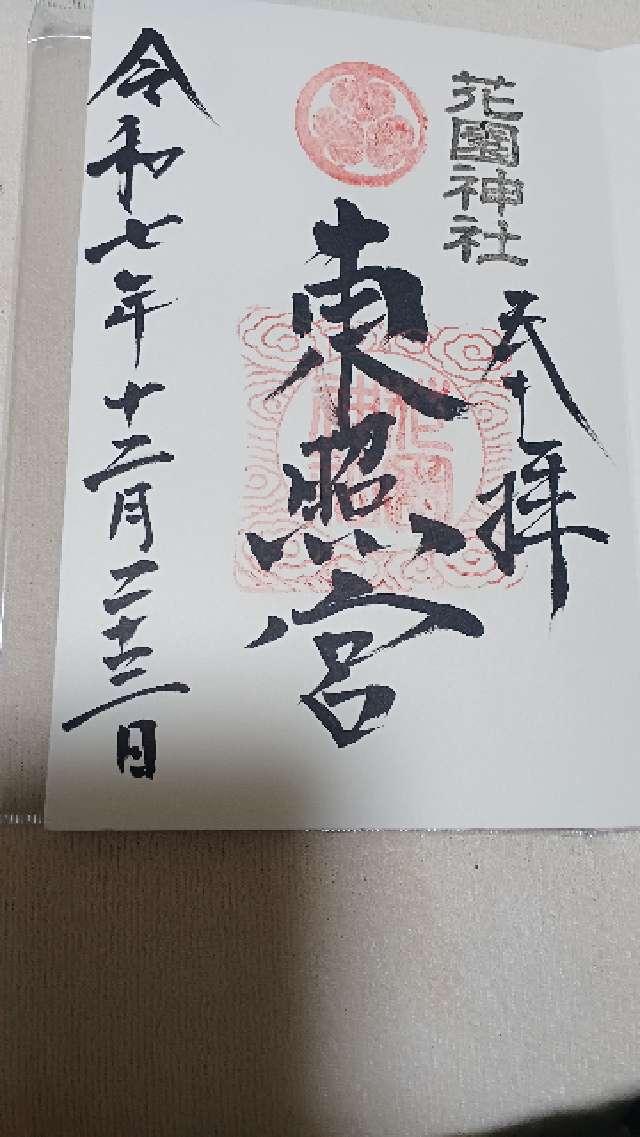 花園神社
奉拝
東照宮
令和七年十二月二十三日